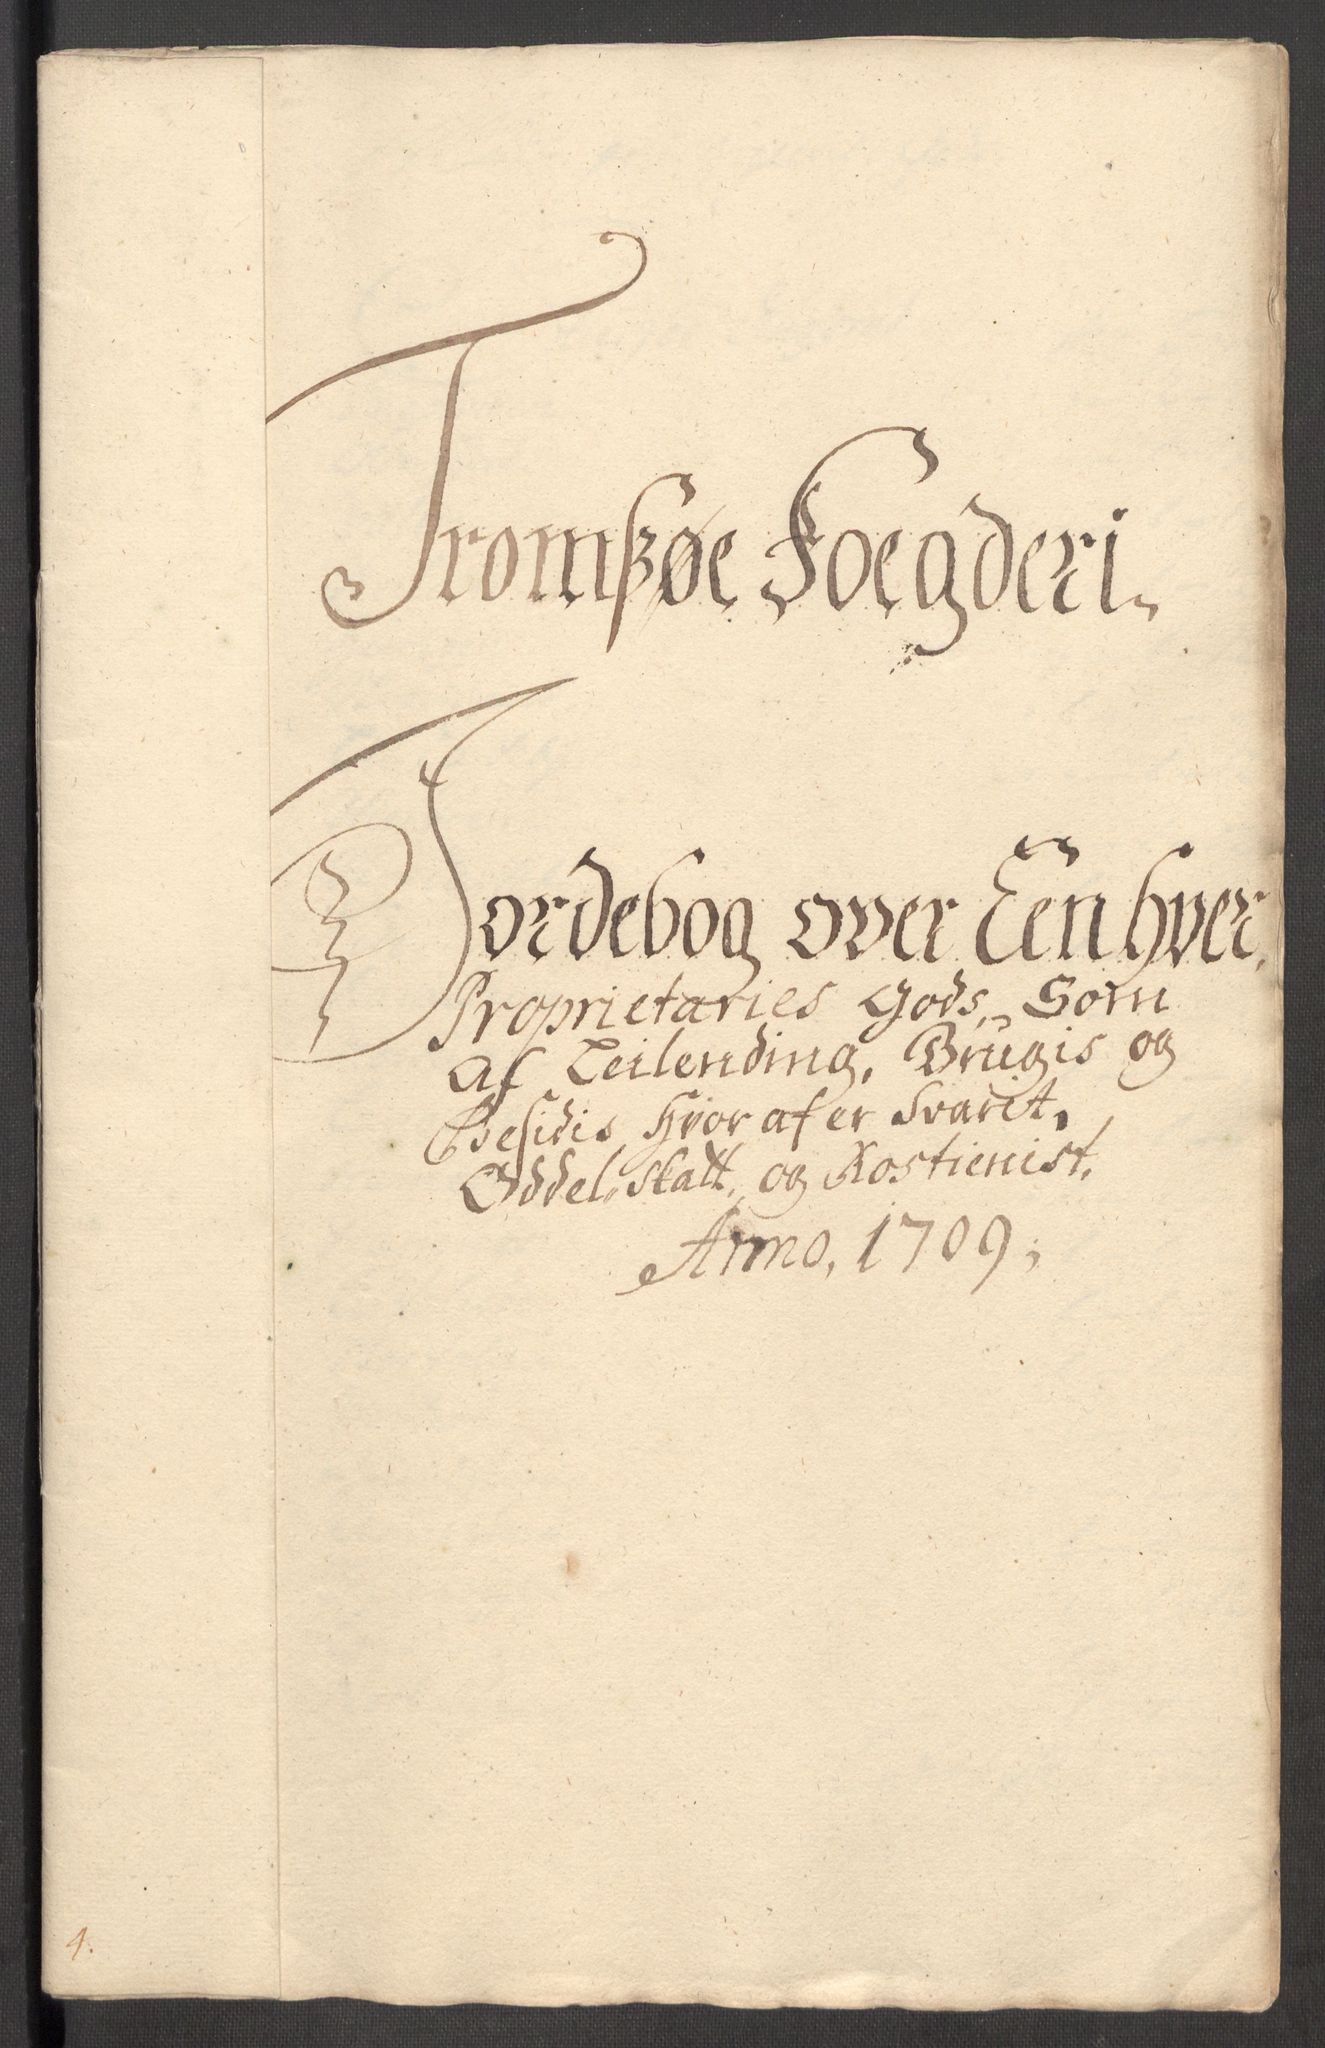 Tromsøe Foegderi
Jordebog over Een hver
Proprietaries Gods, Som
af Leilending, Brugis og
Besidis hvor af er Svarit,
Oddel, skatt, og Rostienist,
Anno, 1709,
4.